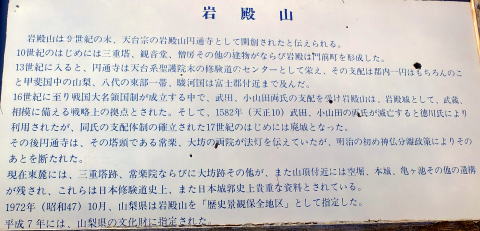 岩殿山
岩殿山は9世紀の末、天台宗の岩殿山円通寺として開創されたと伝えられる。
10世紀のはじめには三重塔、観音堂、僧房その他の建物がならび岩殿は門前町を形成した。
13世紀に入ると、円通寺は天台系聖護院末の修験道のセンターとして栄え、その支配は郡内一円はもちろんのこ
と甲斐国中の山梨、八代の東部一帯、駿河国は富士郡付近まで及んだ。
16世紀に至り戦国大名領国制が成立する中で、武田、小山田両氏の支配を受け岩殿山は、岩殿城として、武蔵、
相模に備える戦略上の拠点とされた。そして、1582年（天正10）武田、小山田の両氏が滅亡すると徳川氏により
利用されたが、同氏の支配体制の確立された17世紀のはじめには廃城となった。
その後円通寺は、その塔頭である常楽、大坊の両院が法灯を伝えていたが、明治の初め神仏分離政策によりその
あとを断たれた。
現在東麓には、三重塔跡、常楽院ならびに大坊跡その他が、また山頂付近には空堀、本城、亀ヶ池その他の遺構
が残され、これらは日本修験道史上、また日本城郭史上貴重な資料とされている。
1972年（昭和47）10月、山梨県は岩殿山を「歴史景観保全地区」として指定した。
平成7年には、山梨県の文化財に指定された。